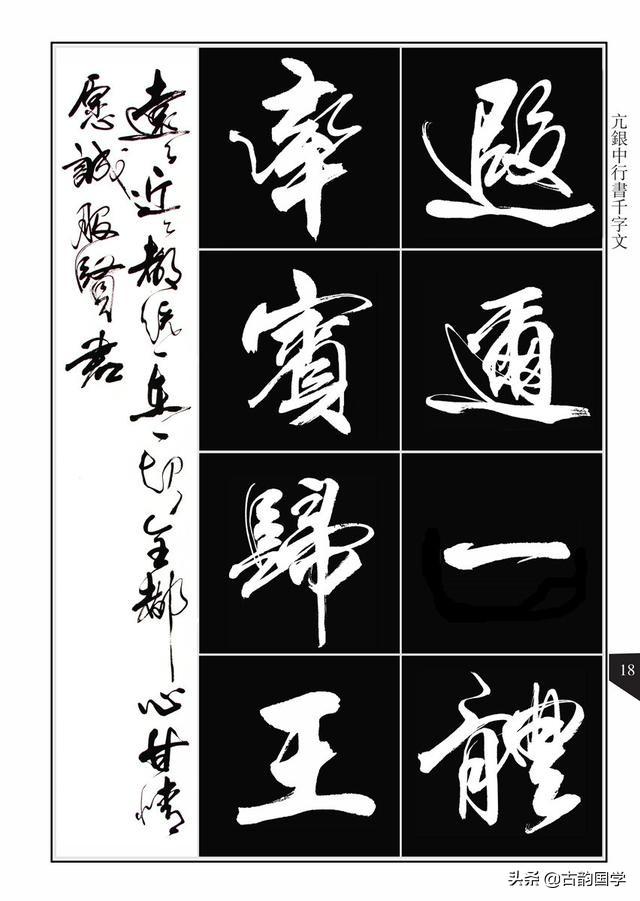 亢銀中行書千字文
遐邇一體
率賓歸王
遠々近々都统一在一起全都心甘情
愿誠服賢君
18
头条 @古韵国学